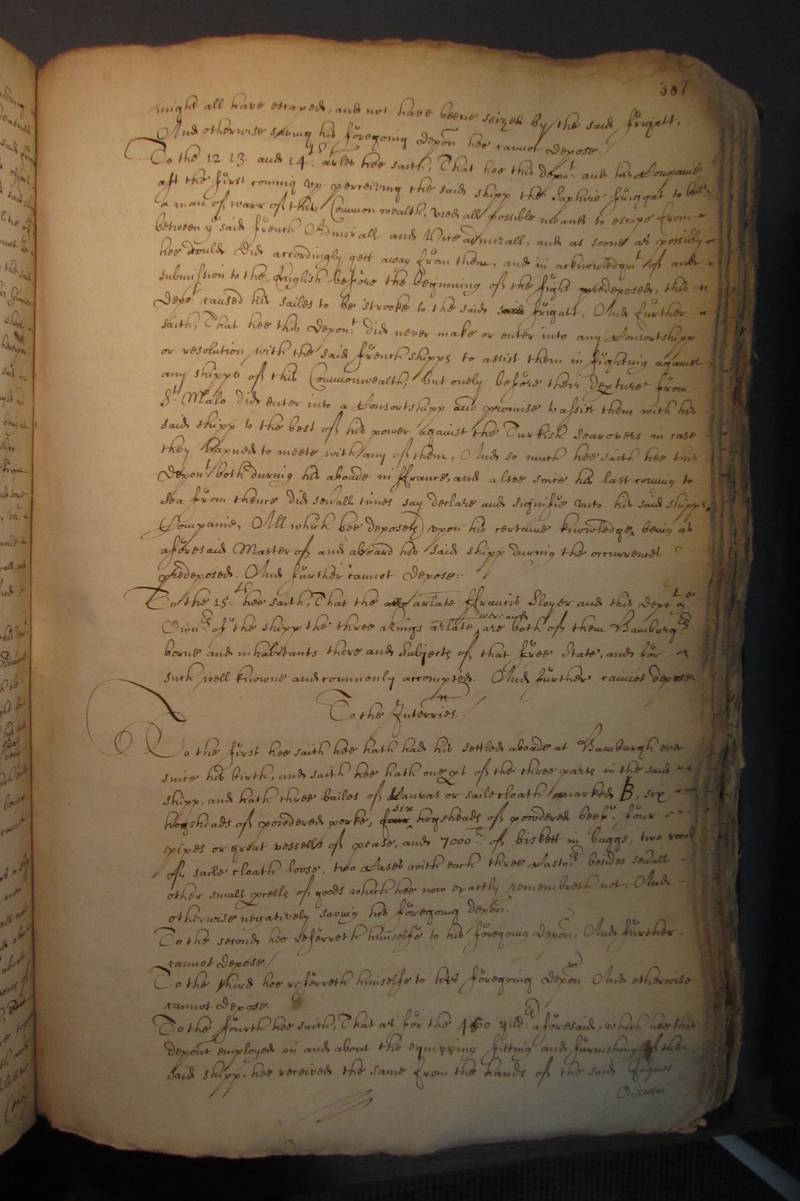 387
might all have escaped, and not have beene seized by the said frigatt,
And otherwise saving his foregoing depon hee cannot depose
To the 12 13 and 14th arles hee saith, That hee this depot and his Companie
att the first coming up perceiving the said shipp the Saphire friggat to be
a man of warr of this Commonwealth, used all possible meanes to escape from
betweene ye said french Admirall and Vice admirall, and as soone as possibly
hee could did accordingly gett away from them, and in acknowledgmt of and
submission to the English before the beginning of the fight predeposed, this
Depot caused his sailes to be strooke to the said frigatt, And further
saith, That hee this Depont did never make or enter into any Consortshipp
or resolution with the said french shipps to assist them in fighting against
any shipps of this Commonwealth, but onely before their depture from
St Malo did enter into a Consortshipp and promise to assist them with his
said shipp to the best of his power against the Turkish Searovers in case
they hapned to meete with any of them, And so much hee saith hee this
Depont both during his aboade in ffrance, and alsoe since his last coming to
Sea from thence did sevall times say declare and signifie unto his said shipps
Companie, All which hee deposeth upon his certaine knowledge, being as
aforesaid Master of and aboard his said shipp during the occurrences
predeposed. And further cannot depose.
To the 15th hee saith, That the arlate ffrancis Sloyer and this depot
Owners of the shipp the three Kings arlate, are both of them Hamburgers
borne and inhabitants there and Subjects of that free State, and for
such well knowne and commonly accompted. And further cannot depose
To the Interries
To the first hee saith hee hath had his settled aboade at Hamburgh ever
since his birth, and saith hee hath one pt of the three parts in the said
shipp, and hath three bailes of Canvas or saile cloath marked B, six
hogsheads of powdered porke, six hogsheads of powdered beefe, four
pipes or great vessells of pease, and 7000 li of biskett in baggs, two
of saile cloath loose, two with each three besides sevall
other small pcells of goods which hee now exactly remembreth not. And
otherwise negatively saving his foregoing depon
To the second hee referreth himselfe to his foregoing depon, And further
cannot depose
To the third hee referreth himselfe to his foregoing depon And otherwise
cannot depose
To the fourth hee saith, That as for the gilders aforesaid, which hee this
depont employed in and about the equipping fitting and furnishing of the
said shipp, hee received the same from the hands of the said